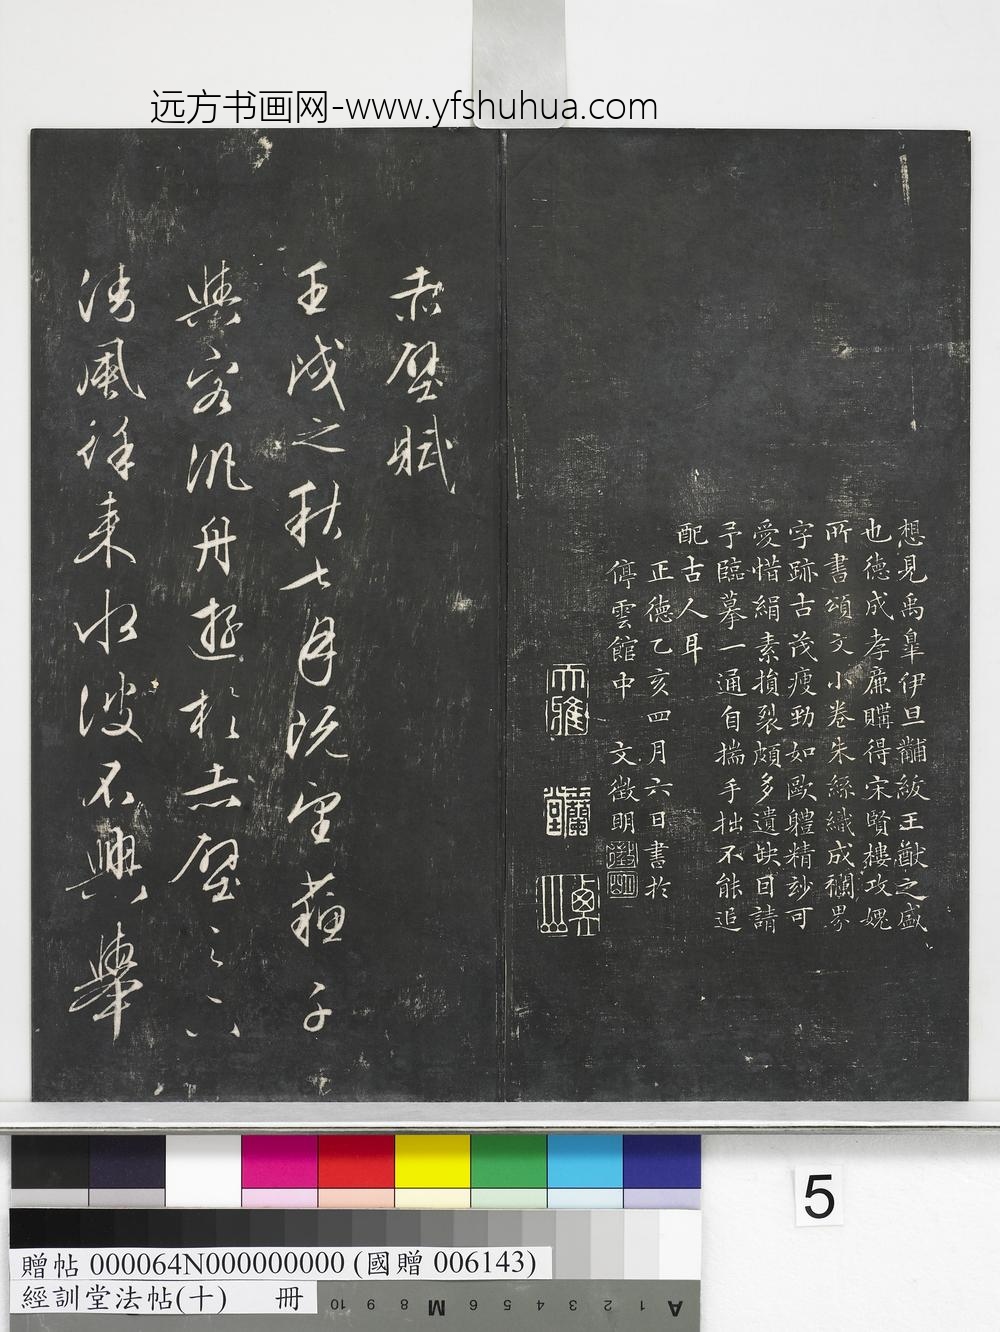 远方书画网-www.yfshuhua.com
想見禹皐伊旦黼紱王猷之盛
也德成孝廉購得宋賢樓攻媿
所書頌文小卷朱絲織成襴界
字跡古茂瘦勁如歐體精玅可
愛惜絹素損裂頗多遺缺日請
予臨摹一通自揣手拙不能追
配古人耳
正德乙亥四月六日書於
停雲館中 文徵明
徵明
大雅
蘭堂
赤壁賦
壬戌之秋七月既望蘓子
與客汎舟遊於赤壁之下
清風徐來水波不興舉
5
贈帖 000064N000000000 (國贈 006143)
經訓堂法帖(十) 冊
10 9 8 M 6 5 4 3 2 1 A